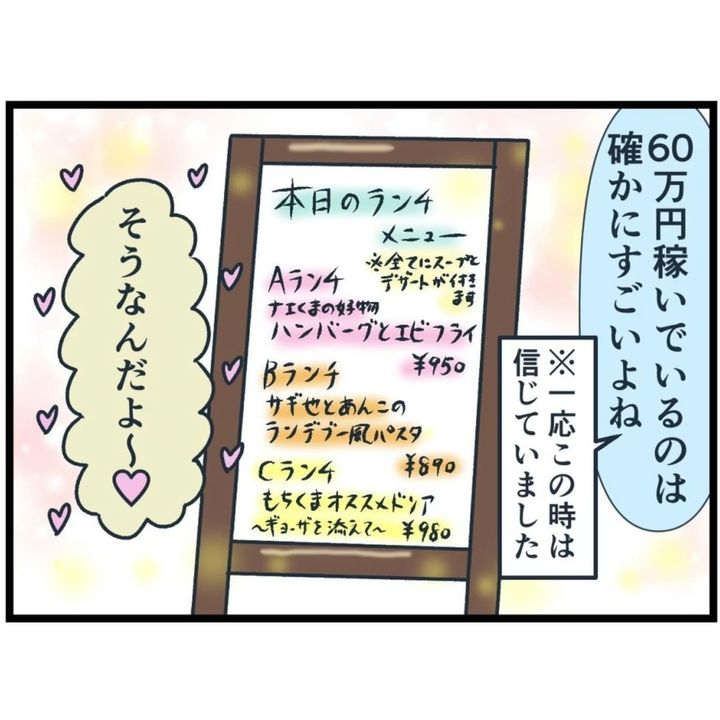 60万円稼いでいるのは
確かにすごいよね
※一応この時は
信じていました
本日のランチ
メニュー
※全てにスープと
デザートが付き
ます
Aランチ
ナエくまの好物
ハンバーグとエビフライ
¥950
Bランチ
サギ也とあんこの
ランデブー風パスタ
¥890
Cランチ
もちくまオススメドリア
〜ギョーザを添えて〜 ¥980
そうなんだよ〜♥